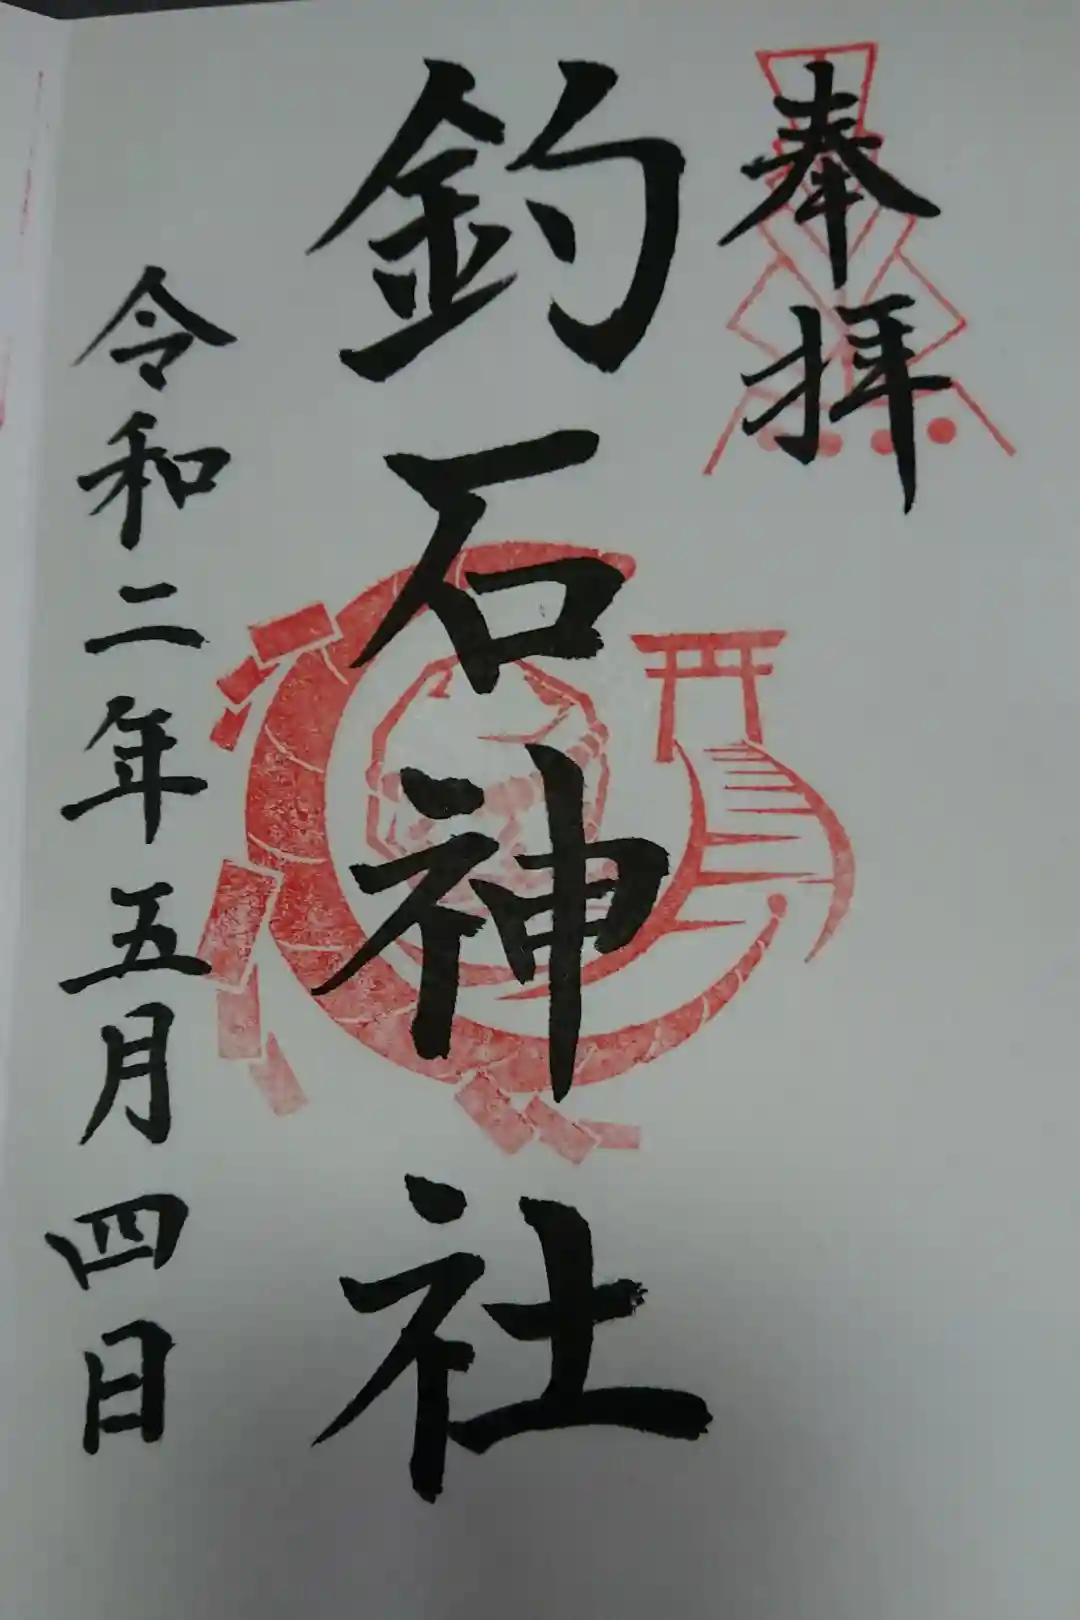 奉拝
釣石神社
令和二年五月四日